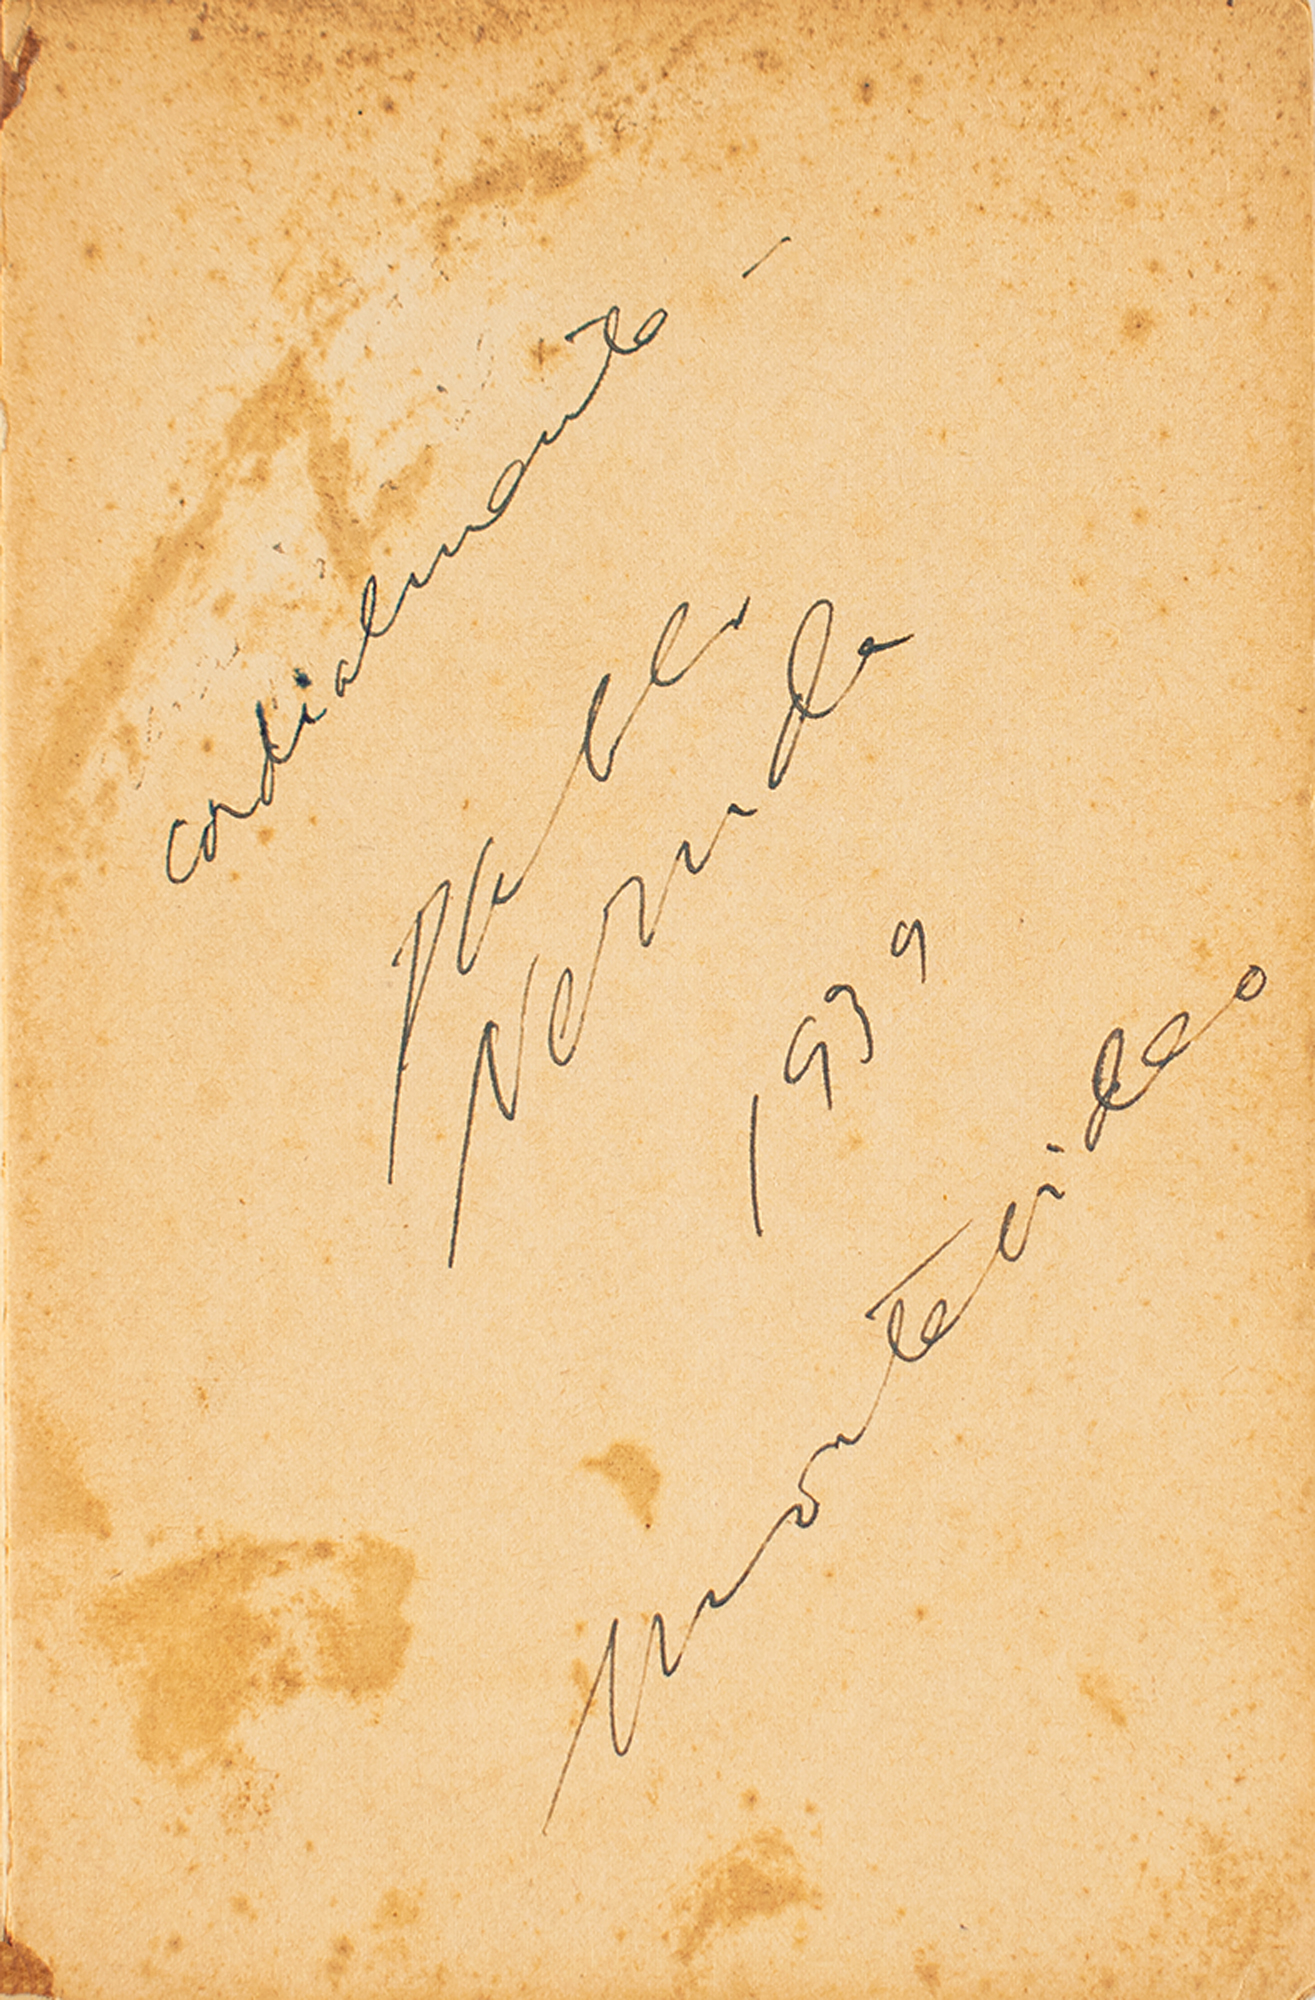 cordialmente -
Pablo
Neruda
1939
Montevideo